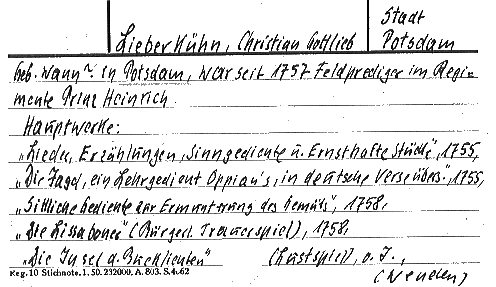 Stadt
Lieberkühn, Christian Gottlieb Potsdam
Geb. wann? in Potsdam, war seit 1757 Feldprediger im Regi-
mente Prinz Heinrich.
Hauptwerke:
„Lieder, Erzählungen, Sinngedichte u. Ernsthafte Stücke", 1755,
„Die Jagd, ein Lehrgedicht Oppian's, in deutsche Verse übers." 1755,
„Sittliche Gedichte zur Ermunterung des Gemüts", 1758,
„Die Lissaboner" (Bürgerl. Trauerspiel), 1758,
„Die Insel d. Bucklichten" (Lustspiel), o. J.,
Reg. 10 Stichnote. 1. 50. 232000. A. 803. S. 4. 62